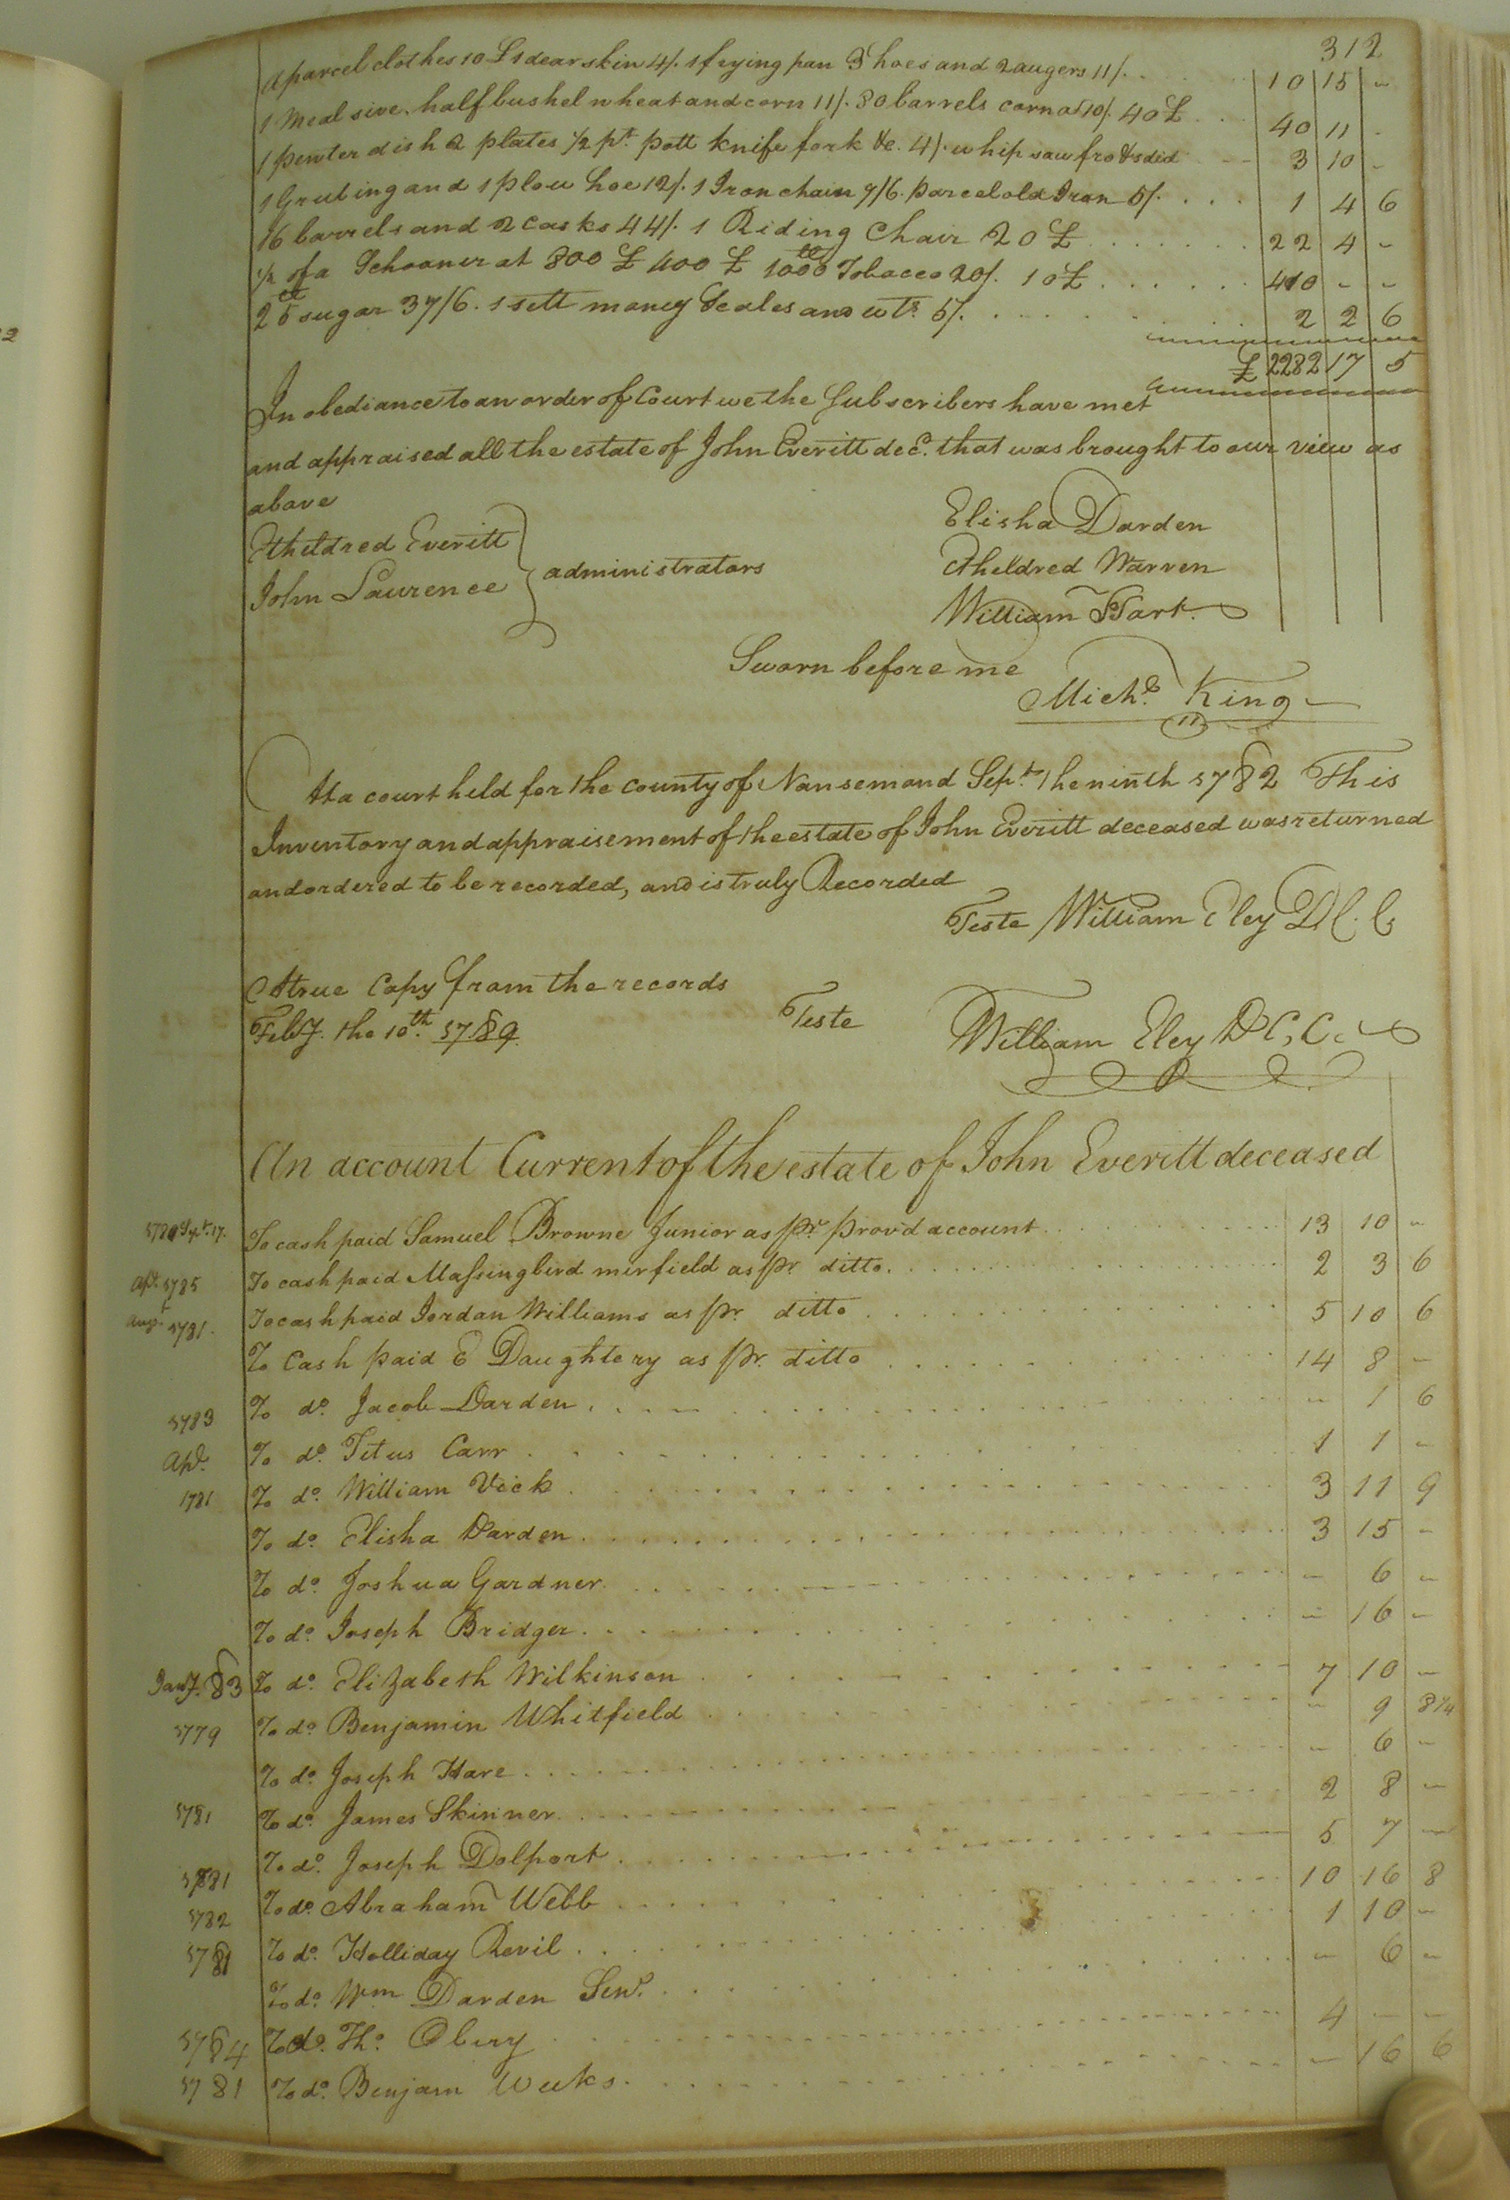 312
A parcel clothes 10 £ 1 dear skin 4/. 1 frying pan 3 hoes and 2 augers 11/. 10 15 -
1 Meal sive. half bushel wheat and corn 11/. 80 barrels corn at 10/. 40 £ 40 11 -
1 pewter dish 2 plates 1/2 pt. pott knife fork &c. 4/. whip saw fro & 3 10 -
1 Grubing and 1 plow hoe 12/. 1 Iron chain 7/6. parcel old Iron 5/. 1 4 6
16 barrels and 2 casks 44/. 1 Riding Chair 20 £ 22 4 -
1/2 of a Schooner at 800 £ 400 £ 1000 lb Tobacco 20/. 10 £ 410 - -
25 lb sugar 37/6. 1 sett money Scales and wts. 5/. 2 2 6
£ 2282 17 5
In obediance to an order of Court we the Subscribers have met
and appraised all the estate of John Everitt decd. that was brought to our view as
above
Etheldred Everitt
John Laurence } administrators
Elisha Darden
Etheldred Warren
William Hart.
Sworn before me
Michl. King
At a court held for the county of Nansemond Sept. the ninth 1782 This
Inventory and appraisement of the estate of John Everitt deceased was returned
and ordered to be recorded, and is truly Recorded
Teste William Eley D C. C
A true Copy from the records
Feby. the 10th. 1789. Teste William Eley D C, C.
An account Current of the estate of John Everitt deceased
Sept. 17. To cash paid Samuel Browne Junior as pr prov'd account 13 10 -
Apl. 1785 To cash paid Massingbird mirfield as pr ditto. 2 3 6
Augt. 1781. To cash paid Jordan Williams as pr ditto 5 10 6
To Cash paid E Daughtery as pr. ditto 14 8 -
1783 To do. Jacob Darden - 1 6
Apl. To do. Titus Carr 1 1 -
1781 To do. William Vick 3 11 9
To do. Elisha Darden 3 15 -
To do. Joshua Gardner - 6 -
To do. Joseph Bridger - 16 -
Jany. 83 To do. Elizabeth Wilkinson 7 10 -
1779 To do. Benjamin Whitfield - 9 8 1/4
To do. Joseph Hare - 6 -
1781 To do. James Skinner 2 8 -
To do. Joseph Dolport 5 7 -
1781 To do. Abraham Webb 10 16 8
1782 To do. Holliday Revil 1 10 -
1781 To do. Wm Darden Senr. - 6 -
1784 To do. Tho. Obery 4 - -
1781 To do. Benjam Weeks. - 16 6